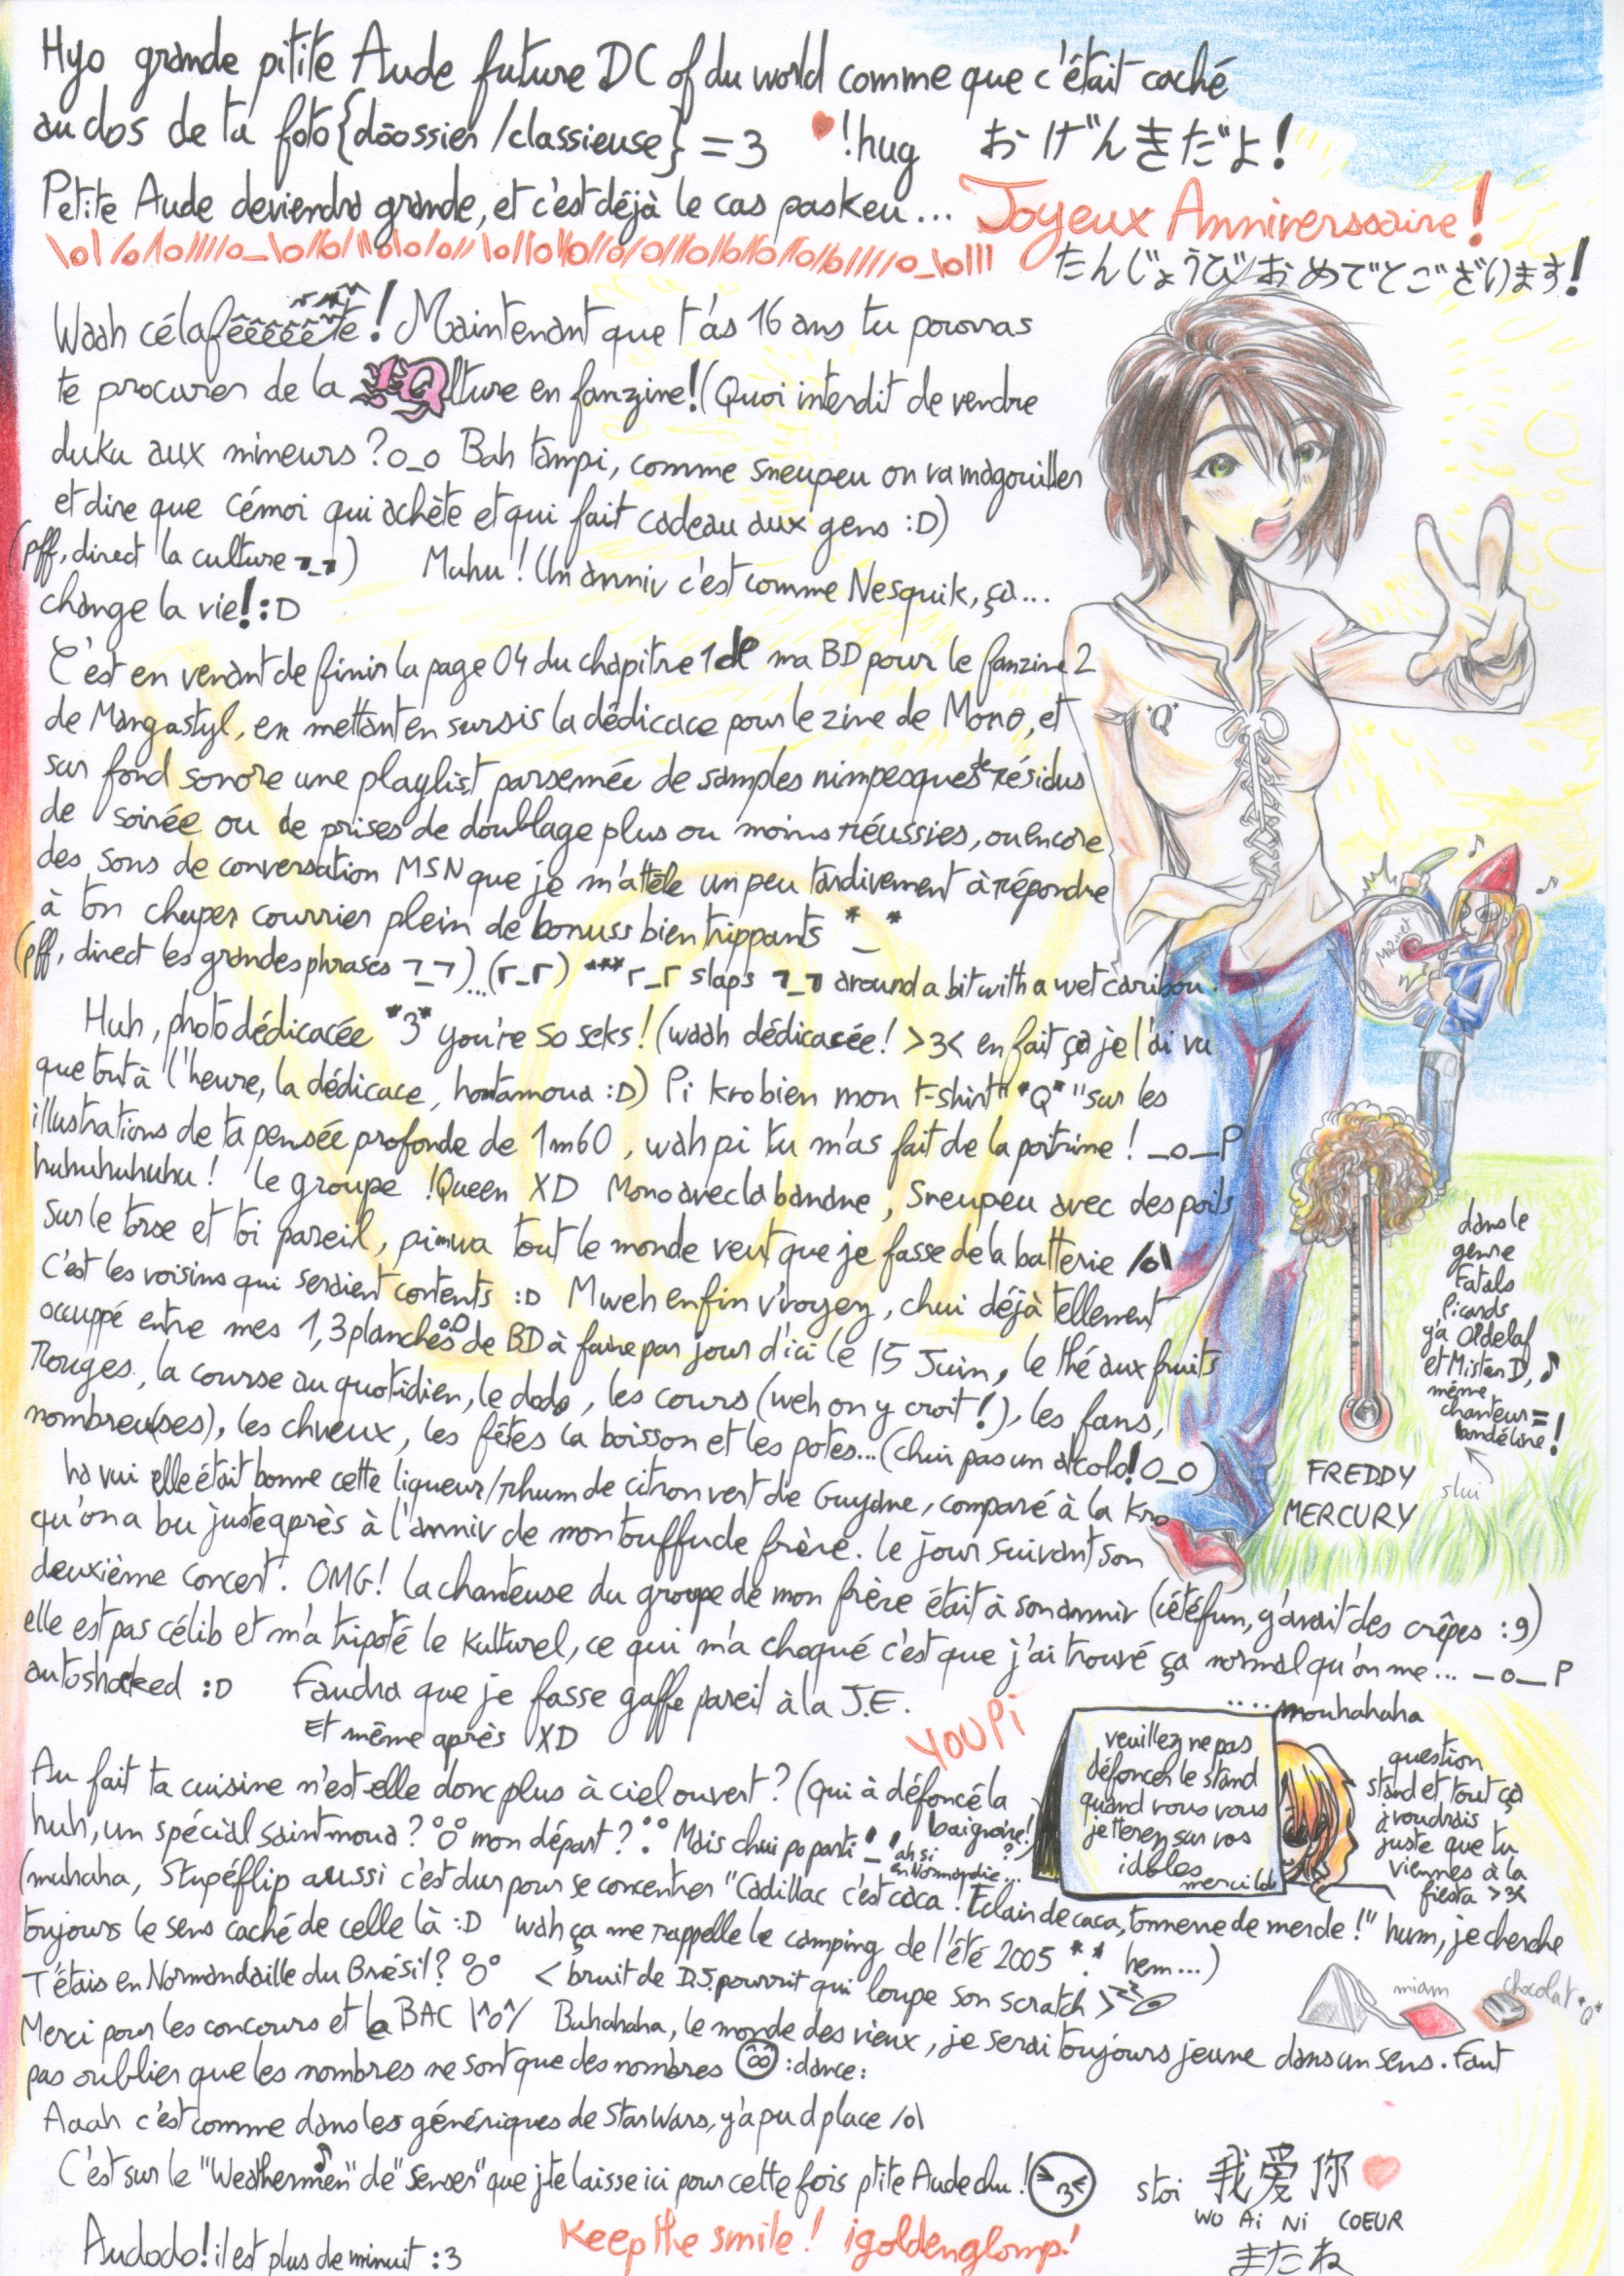 Hyo grande pitite Aude future DC of du world comme que c'était caché
au dos de ta foto {dâossier / classieuse} = 3 ♥ !hug おげんきだよ!
Petite Aude deviendra grande, et c'est déjà le cas paskeu... Joyeux Anniverssaire!
たんじょうびおめでとございます!
Waah célafêêêêête! Maintenant que t'as 16 ans tu pourras
te procurer de la Qlture en fanzine! (Quoi interdit de vendre
duku aux mineurs? o_o Bah tampi, comme sneupeu on va magouiller
et dire que cémoi qui achète et qui fait cadeau aux gens :D)
(pff, direct la culture ¬_¬) Muhu! Un anniv c'est comme Nesquik, ça...
change la vie! :D
C'est en venant de finir la page 04 du chapitre 1 de ma BD pour le fanzine 2
de Mangastyl, en mettant en sursis la dédicace pour le zine de Mono, et
sur fond sonore une playlist parsemée de samples nimpesques de résidus
de soirée ou de prises de doublage plus ou moins réussies, ou encore
des sons de conversation MSN que je m'attèle un peu tardivement à répondre
à ton chuper courrier plein de bonuss bien trippants *_*
(pff, direct les grandes phrases ¬_¬)...(r_r) ***r_r slaps ¬_¬ around a bit with a wet caribou.
Huh, photo dédicacée *3* you're so seks! (waah dédicacée! >3< en fait ça je l'ai vu
que tout à l'heure, la dédicace, hontamoua :D) Pi krobien mon t-shirt "*Q*" sur les
illustrations de ta pensée profonde de 1m60, wah pi tu m'as fait de la poitrine! _o_P
huhuhuhuhu! le groupe !Queen XD Mono avec la banane, Sneupeu avec des poils
sur le torse et toi pareil, pimua tout le monde veut que je fasse de la batterie /o\
C'est les voisins qui seraient contents :D Mweh enfin v'voyez, chui déjà tellement
occuppé entre mes 1,3 planches o.O de BD à faire par jour d'ici le 15 Juin, le thé aux fruits
Rouges, la course au quotidien, le dodo, les cours (weh on y croit!), les fans,
nombreu(ses), les chveux, les fêtes la boisson et les potes... (chui pas un alcolo! O_O)
ha vui elle était bonne cette liqueur/rhum de citron vert de Guyane, comparé à la Kro
qu'on a bu juste après à l'anniv de mon touffude frère. le jour suivant son
deuxième concert. OMG! La chanteuse du groupe de mon frère était à son anniv (cétéfun, y'avait des crêpes :9)
elle est pas célib et m'a tripoté le Kulturel, ce qui m'a choqué c'est que j'ai trouvé ça normal qu'on me... _o_P
autoshocked :D Faudra que je fasse gaffe pareil à la J.E.
Et même après XD
....mouhahaha
Au fait ta cuisine n'est-elle donc plus à ciel ouvert? (qui à défoncé la
baignoire!?)
huh, un spécial saintmoua? °o° mon départ? °.° Mais chui po parti !_! ah si en Normandie...
(muhaha, Stupéflip aussi c'est dur pour se concentrer "Cadillac c'est caca! Eclair de caca, tonnerre de merde!" hum, je cherche
toujours le sens caché de celle là :D wah ça me rappelle le camping de l'été 2005 *.* hem...)
T'étais en Normandaille du Brésil? °o° < bruit de DJ pourrit qui loupe son scratch >
Merci pour les concours et le BAC \^o^/ Buhahaha, le monde des vieux, je serai toujours jeune dans un sens. Faut
pas oublier que les nombres ne sont que des nombres :dance:
Aaah c'est comme dans les génériques de Star Wars, y'a pu d place /o\
C'est sur le "Weathermen" de "Senser" que j-te laisse ici pour cette fois ptite Aude chu! >3<
Audodo! il est plus de minuit :3
Keep the smile! igoldenglomp!
stoi 我爱你 ♥
WO Ai Ni COEUR
またね
*Q*
Mower
dans le
genre
Fatals
Picards
y'a Oldelaf
et Mister D, ♪
même
chanteur =
bandéline!
slui
FREDDY
MERCURY
YOUPi
veuillez ne pas
défoncer le stand
quand vous vous
jetterez sur vos
idoles
merci
question
stand et tout ça
j'voudrais
juste que tu
viennes à la
fiesta >3<
miam
chocolat *o*